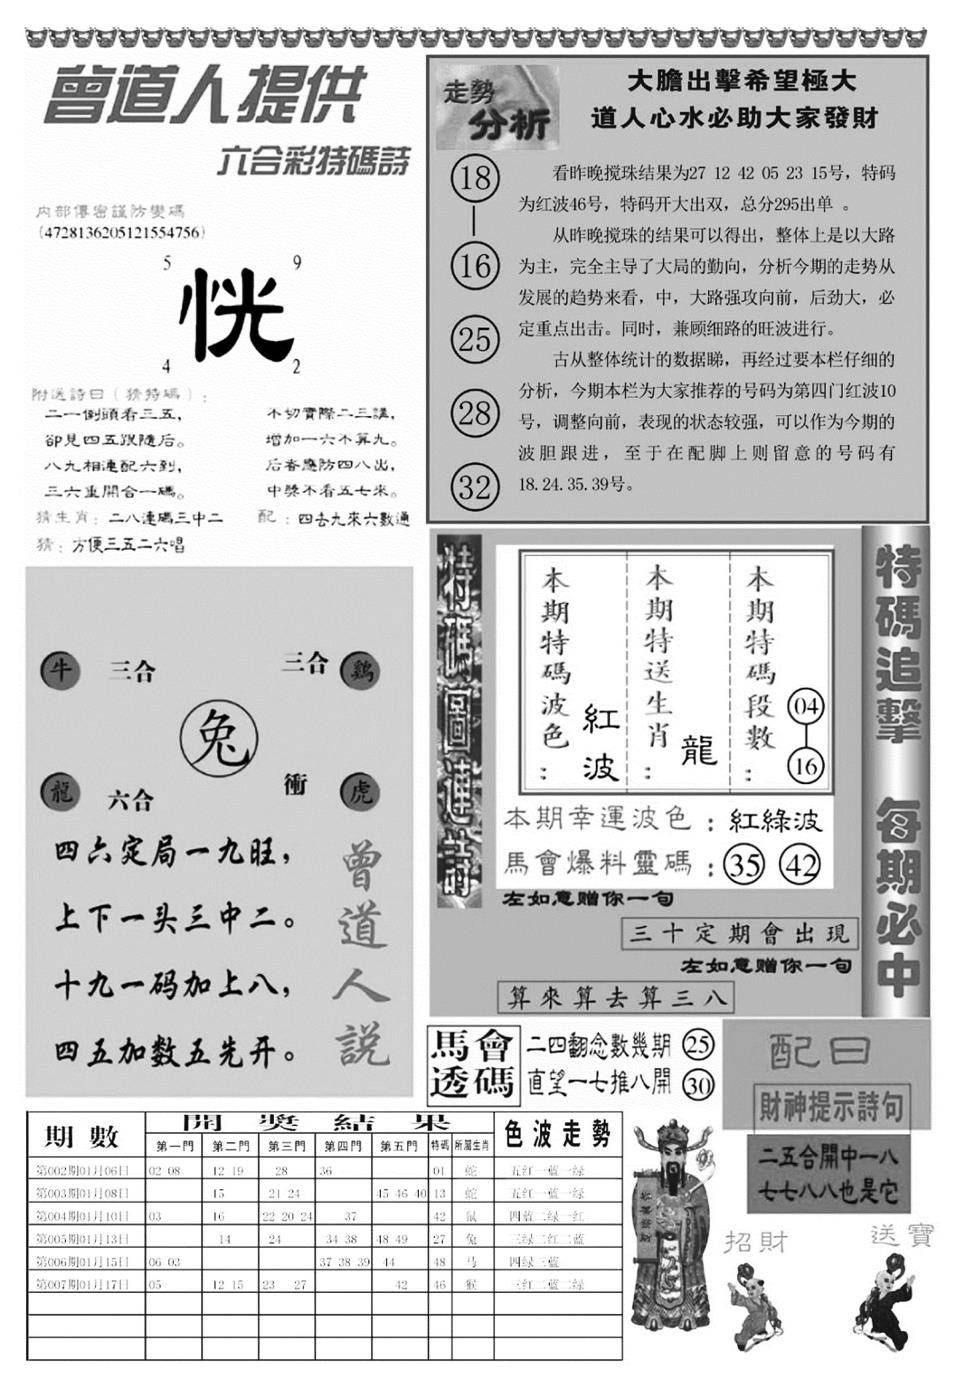 曾道人提供
六合彩特碼詩
内部傳密謹防變碼
(4728136205121554756)
5 9
恍
4 2
附送詩曰(猜特碼):
二一倒頭看三五, 不切實際二三講,
卻見四五跟隨后。 增加一六不算九。
八九相連配六到, 后查應防四八出,
三六重開合一碼。 中獎不看五七來。
猜生肖:二八連碼三中二 配:四去九來六數通
猜:方便三五二六唱
走勢
分析
大膽出擊希望極大
道人心水必助大家發財
18
16
25
28
32
看昨晚搅珠结果为27 12 42 05 23 15号,特码
为红波46号,特码开大出双,总分295出单 。
从昨晚搅珠的结果可以得出,整体上是以大路
为主,完全主导了大局的勤向,分析今期的走势从
发展的趋势来看,中,大路强攻向前,后劲大,必
定重点出击。同时,兼顾细路的旺波进行。
古从整体统计的数据睇,再经过要本栏仔细的
分析,今期本栏为大家推荐的号码为第四门红波10
号,调整向前,表现的状态较强,可以作为今期的
波胆跟进,至于在配脚上则留意的号码有
18.24.35.39号。
牛 三合 三合 鷄
兔
龍 六合 衝 虎
四六定局一九旺,
上下一头三中二。
十九一码加上八,
四五加数五先开。
曾道人説
本期特碼波色:紅波
本期特送生肖:龍
本期特碼段數:04 16
本期幸運波色:紅綠波
馬會爆料靈碼:35 42
左如意赠你一句
三十定期會出現
左如意赠你一句
算來算去算三八
特碼追擊 每期必中
馬會透碼
二四翻念數幾期 25
直望一七推八開 30
配曰
財神提示詩句
二五合開中一八
七七八八也是它
招財
送寶
期數 開獎結果 色波走勢
第一門 第二門 第三門 第四門 第五門 特碼 所屬生肖
第002期01月06日 02 08 12 19 28 36 01 蛇 五红一蓝一绿
第003期01月08日 15 21 24 45 46 40 13 蛇 五红一蓝一绿
第004期01月10日 03 16 22 20 24 37 42 鼠 四蓝二绿一红
第005期01月13日 14 24 34 38 48 49 27 兔 三绿二红二蓝
第006期01月15日 06 03 37 38 39 44 48 马 四绿三蓝
第007期01月17日 05 12 15 23 27 42 46 猴 三红二蓝二绿